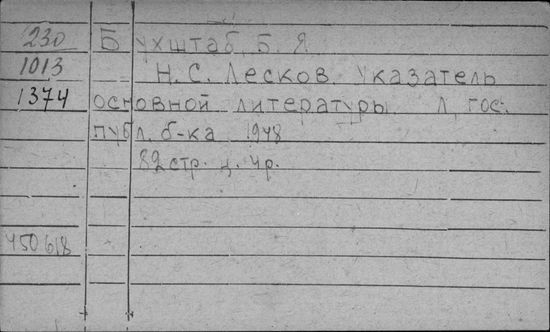 230 Бухштаб, Б. Я.
1013 Н. С. Лесков. Указатель
1374 основной литературы. Л, гос.
публ. б-ка 1948
82 стр. ц. 4р.
450618